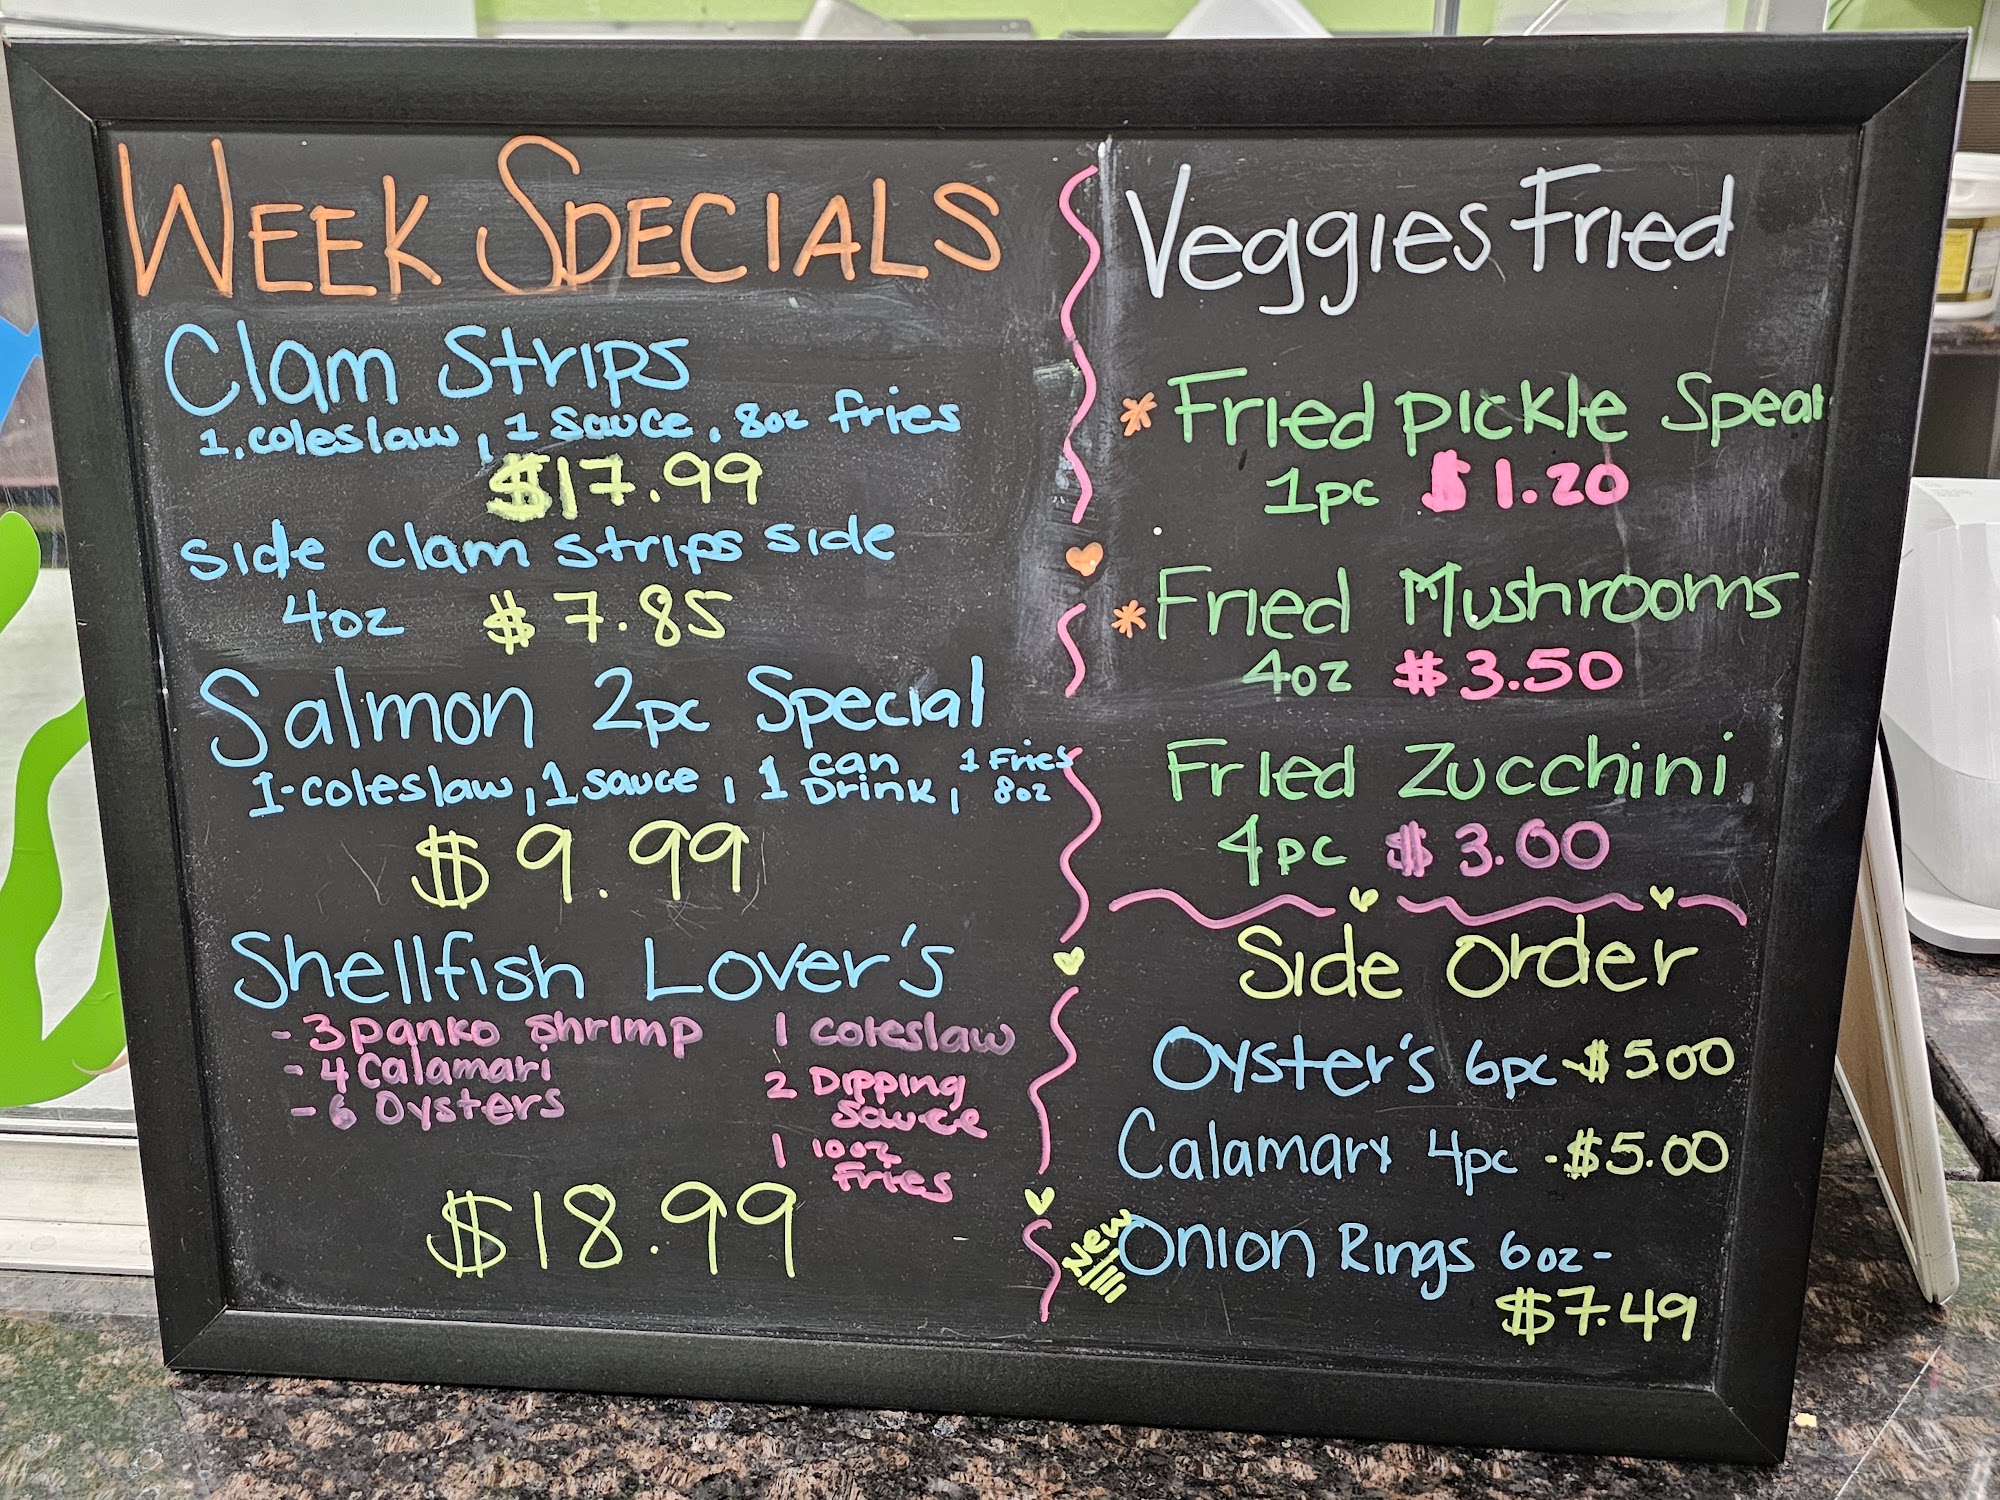 WEEK SPECIALS
Clam Strips
1.coleslaw, 1 Sauce, 8oz fries
$17.99
Side clam strips side
4oz $7.85
Salmon 2pc Special
1-coleslaw, 1 sauce, 1 can Drink, 1 Fries 8oz
$9.99
Shellfish Lover's
- 3 panko shrimp
- 4 Calamari
- 6 Oysters
1 coleslaw
2 Dipping
sauce
1 10oz
fries
$18.99
Veggies Fried
* Fried pickle Spear
1pc $1.20
* Fried Mushrooms
4oz $3.50
Fried Zucchini
4pc $3.00
Side Order
Oyster's 6pc -$5.00
Calamary 4pc -$5.00
New!!!!
Onion Rings 6oz-
$7.49